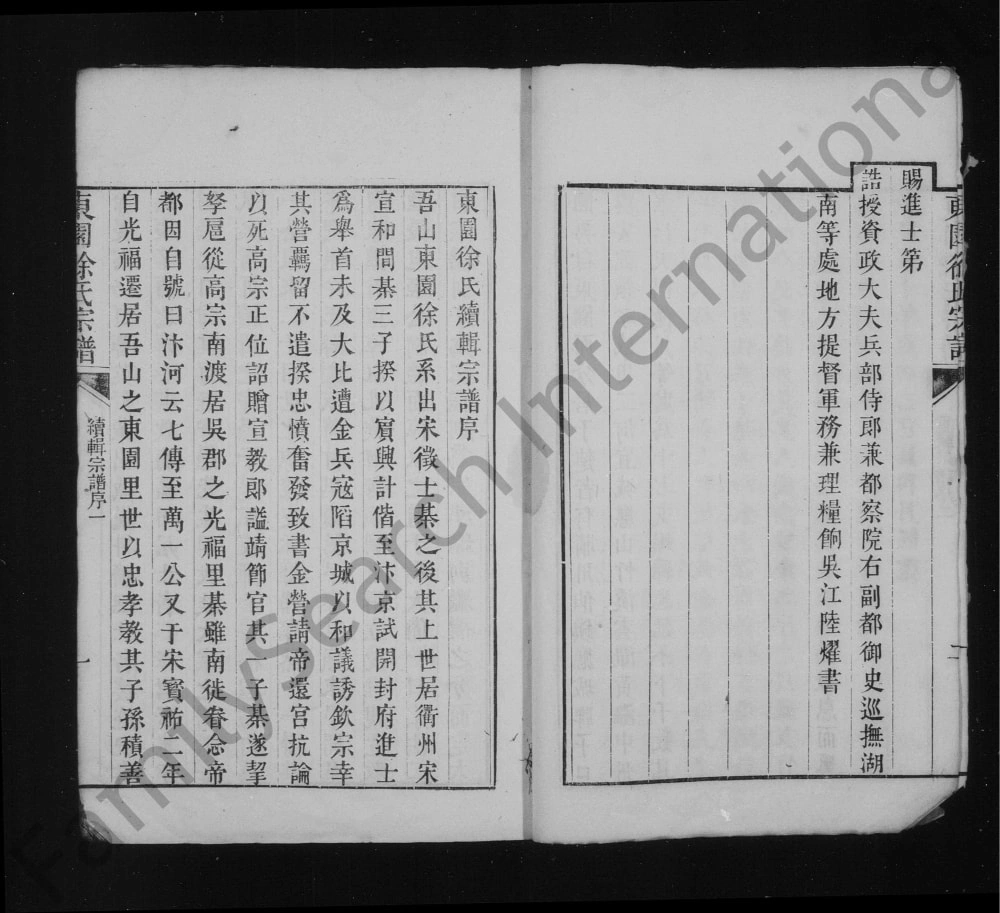 東園徐氏宗譜
賜進士第
誥授資政大夫兵部侍郎兼都察院右副都御史巡撫湖
南等處地方提督軍務兼理糧餉吳江陸燿書
東園徐氏續輯宗譜序
吾山東園徐氏系出宋徵士棊之後其上世居衢州宋
宣和間棊三子揆以賔興計偕至汴京試開封府進士
爲舉首未及大比遭金兵寇陷京城以和議誘欽宗幸
其營羈留不遣揆忠憤奮發致書金營請帝還宮抗論
以死高宗正位詔贈宣教郎謚靖節官其一子棊遂挈
孥扈從高宗南渡居吳郡之光福里棊雖南徙眷念帝
都因自號曰汴河云七傳至萬一公又于宋寳祐二年
自光福遷居吾山之東園里世以忠孝教其子孫積善
東園徐氏宗譜
續輯宗譜序一
一
FamilySearch International